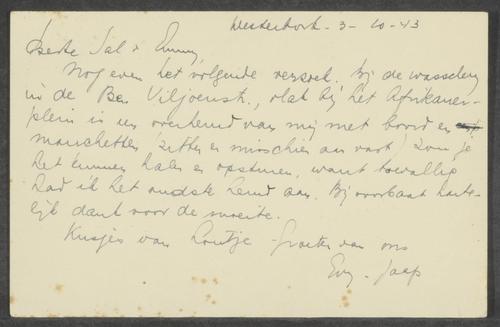 Westerbork - 3 - 10 - '43
Beste Sal & Emmy,
Nog even het volgende verzoek. Bij de wasscherij
in de Ben Viljoenstr., vlak bij het Afrikaner-
plein is een overhemd van mij met boord en
manchetten (zitten er misschien aan vast). Zou je
het kunnen halen en opsturen, want toevallig
had ik het oudste hemd aan. Bij voorbaat harte-
lijk dank voor de moeite.
Kusjes van Loutje - Groeten van ons
Evy - Jaap